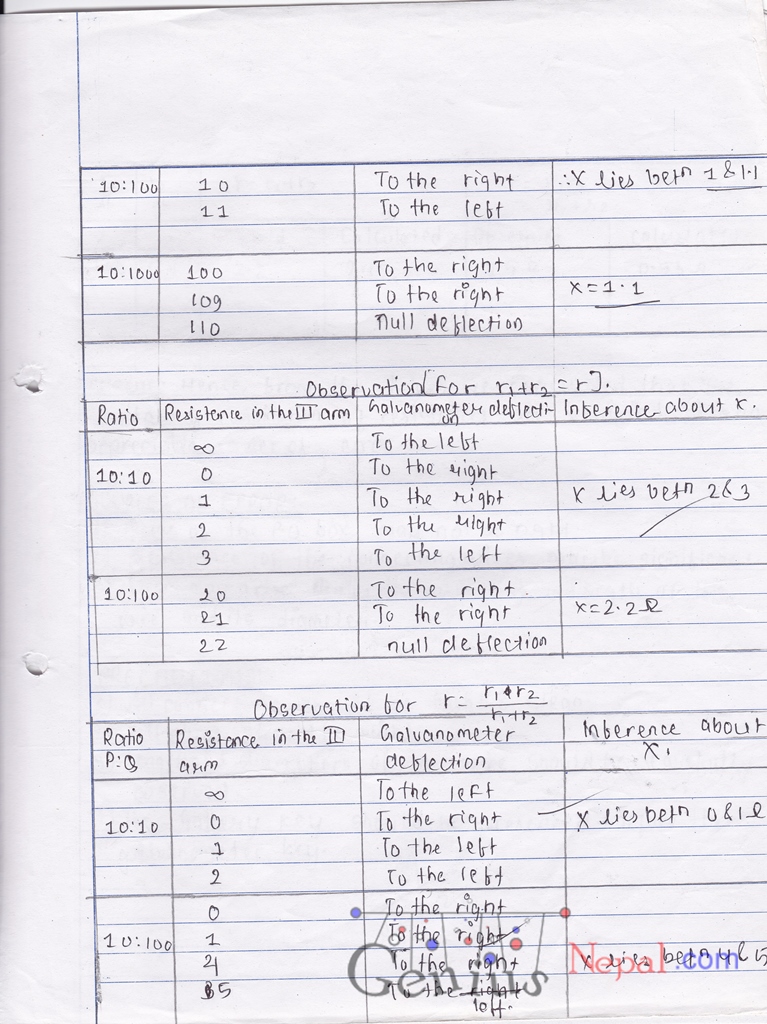 10:100 10 To the right ∴X lies betn 1 & 1.1
11 To the left
10:1000 100 To the right
109 To the right x = 1.1
110 null deflection
Observation [for r1+r2 = r].
Ratio Resistence in the III arm Galvanometer deflecti- Inference about x.
on
∞ To the left
10:10 0 To the right
1 To the right X lies betn 2 & 3
2 To the right
3 To the left
10:100 20 To the right.
21 To the right x=2.2Ω
22 null deflection
Observation for r = r1 r2 / r1+r2
Ratio Resistance in the III Galvanometer Inference about
P:Q arm deflection X.
∞ To the left
10:10 0 To the right X lies betn 0 & 1Ω
1 To the left
2 To the left
0 To the right
10:100 1 To the right
4 To the right X lies betn 4 & 5
5 To the right
left.
Genius Nepal.com